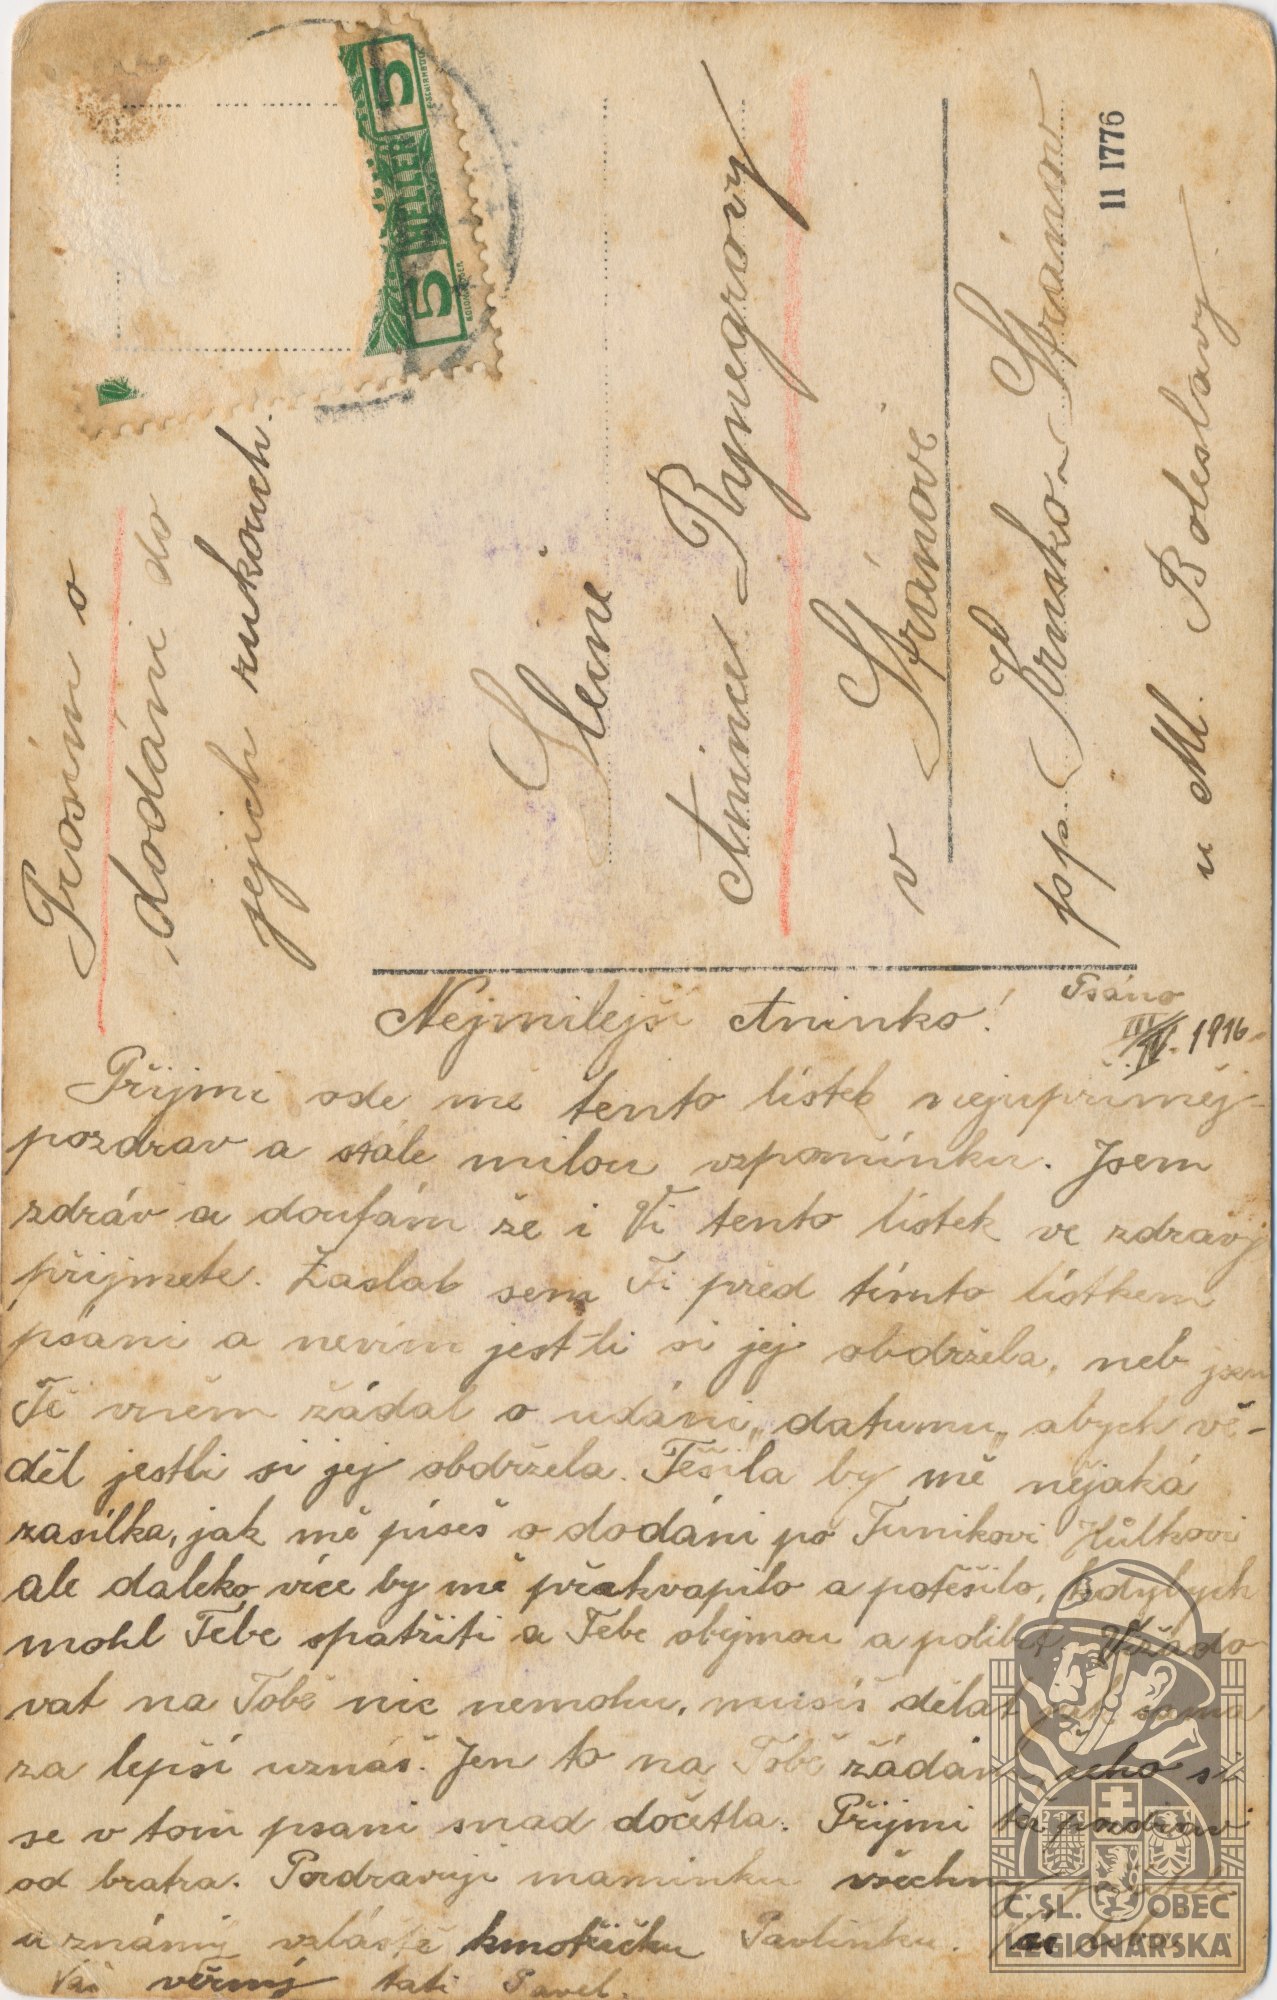 Prosím o
dodání do
jejich rukouch.
5 HELLER 5
Slečně
Anince Rynegrovy
v Stránově
pp. Krnsko-Stránov
u Ml. Boleslavy.
11 1776
Psáno
III/IV. 1916.
Nejmilejší Aninko!
Přijmi ode mě tento lístek nejupřímněj-
pozdrav a stále milou vzpomínku. Jsem
zdráv a doufám že i Vi tento lístek ve zdravj
přijmete. Zaslal sem Ti před tímto lístkem
psani a nevím jest-li si jej obdržela, neb jsem
Tě vněm žádal o udání „datumu„ abych vě-
děl jestli si jej obdržela. Těšila by mě nějaká
zasílka, jak mě píšeš o dodáni po Tunikovi Hůlkovi
ale daleko více by mě překvapilo a potěšilo, kdybych
mohl Tebe spatřiti a Tebe obejmou a polibit. Vižado
vat na Tobě nic nemohu, musíš dělat jak sama
za lepší uznáš. Jen to na Tobě žádám, čeho si
se v tom psani snad dočetla. Přijmi též pozdrav
od bratra. Pozdravuji maminku všechny přátele
a známý vzláště kmotřičku Pavlínku.
Váš věrný tati Pavel.
Č. SL. OBEC
LEGIONÁŘSKÁ